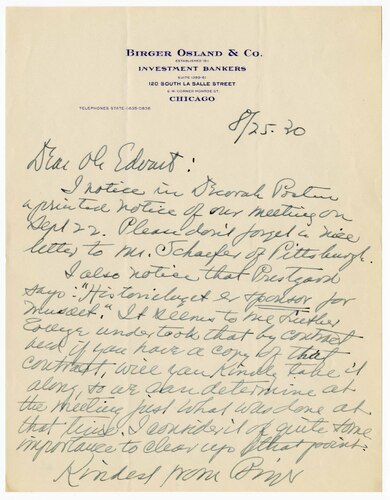 BIRGER OSLAND & CO.
ESTABLISHED 1911
INVESTMENT BANKERS
120 SOUTH LA SALLE STREET
S.W. CORNER MONROE ST.
CHICAGO
TELEPHONES STATE
8/25.30
Dear Ole Edvart:
I notice in Decorah Posten
a printed notice of our meeting on
Sept 22. Please don't forget a nice
letter to Mr. Schaefer of Pittsburgh.
I also notice that Prestgard
says: "Historielaget er sponsor for
Museet." It seems to me Luther
College undertook that by contract
and if you have a copy of that
contract, will you kindly take it
along, so we can determine at
the meeting just what was done at
that time. I consider it of quite some
importance to clear up that point.
Kindest from